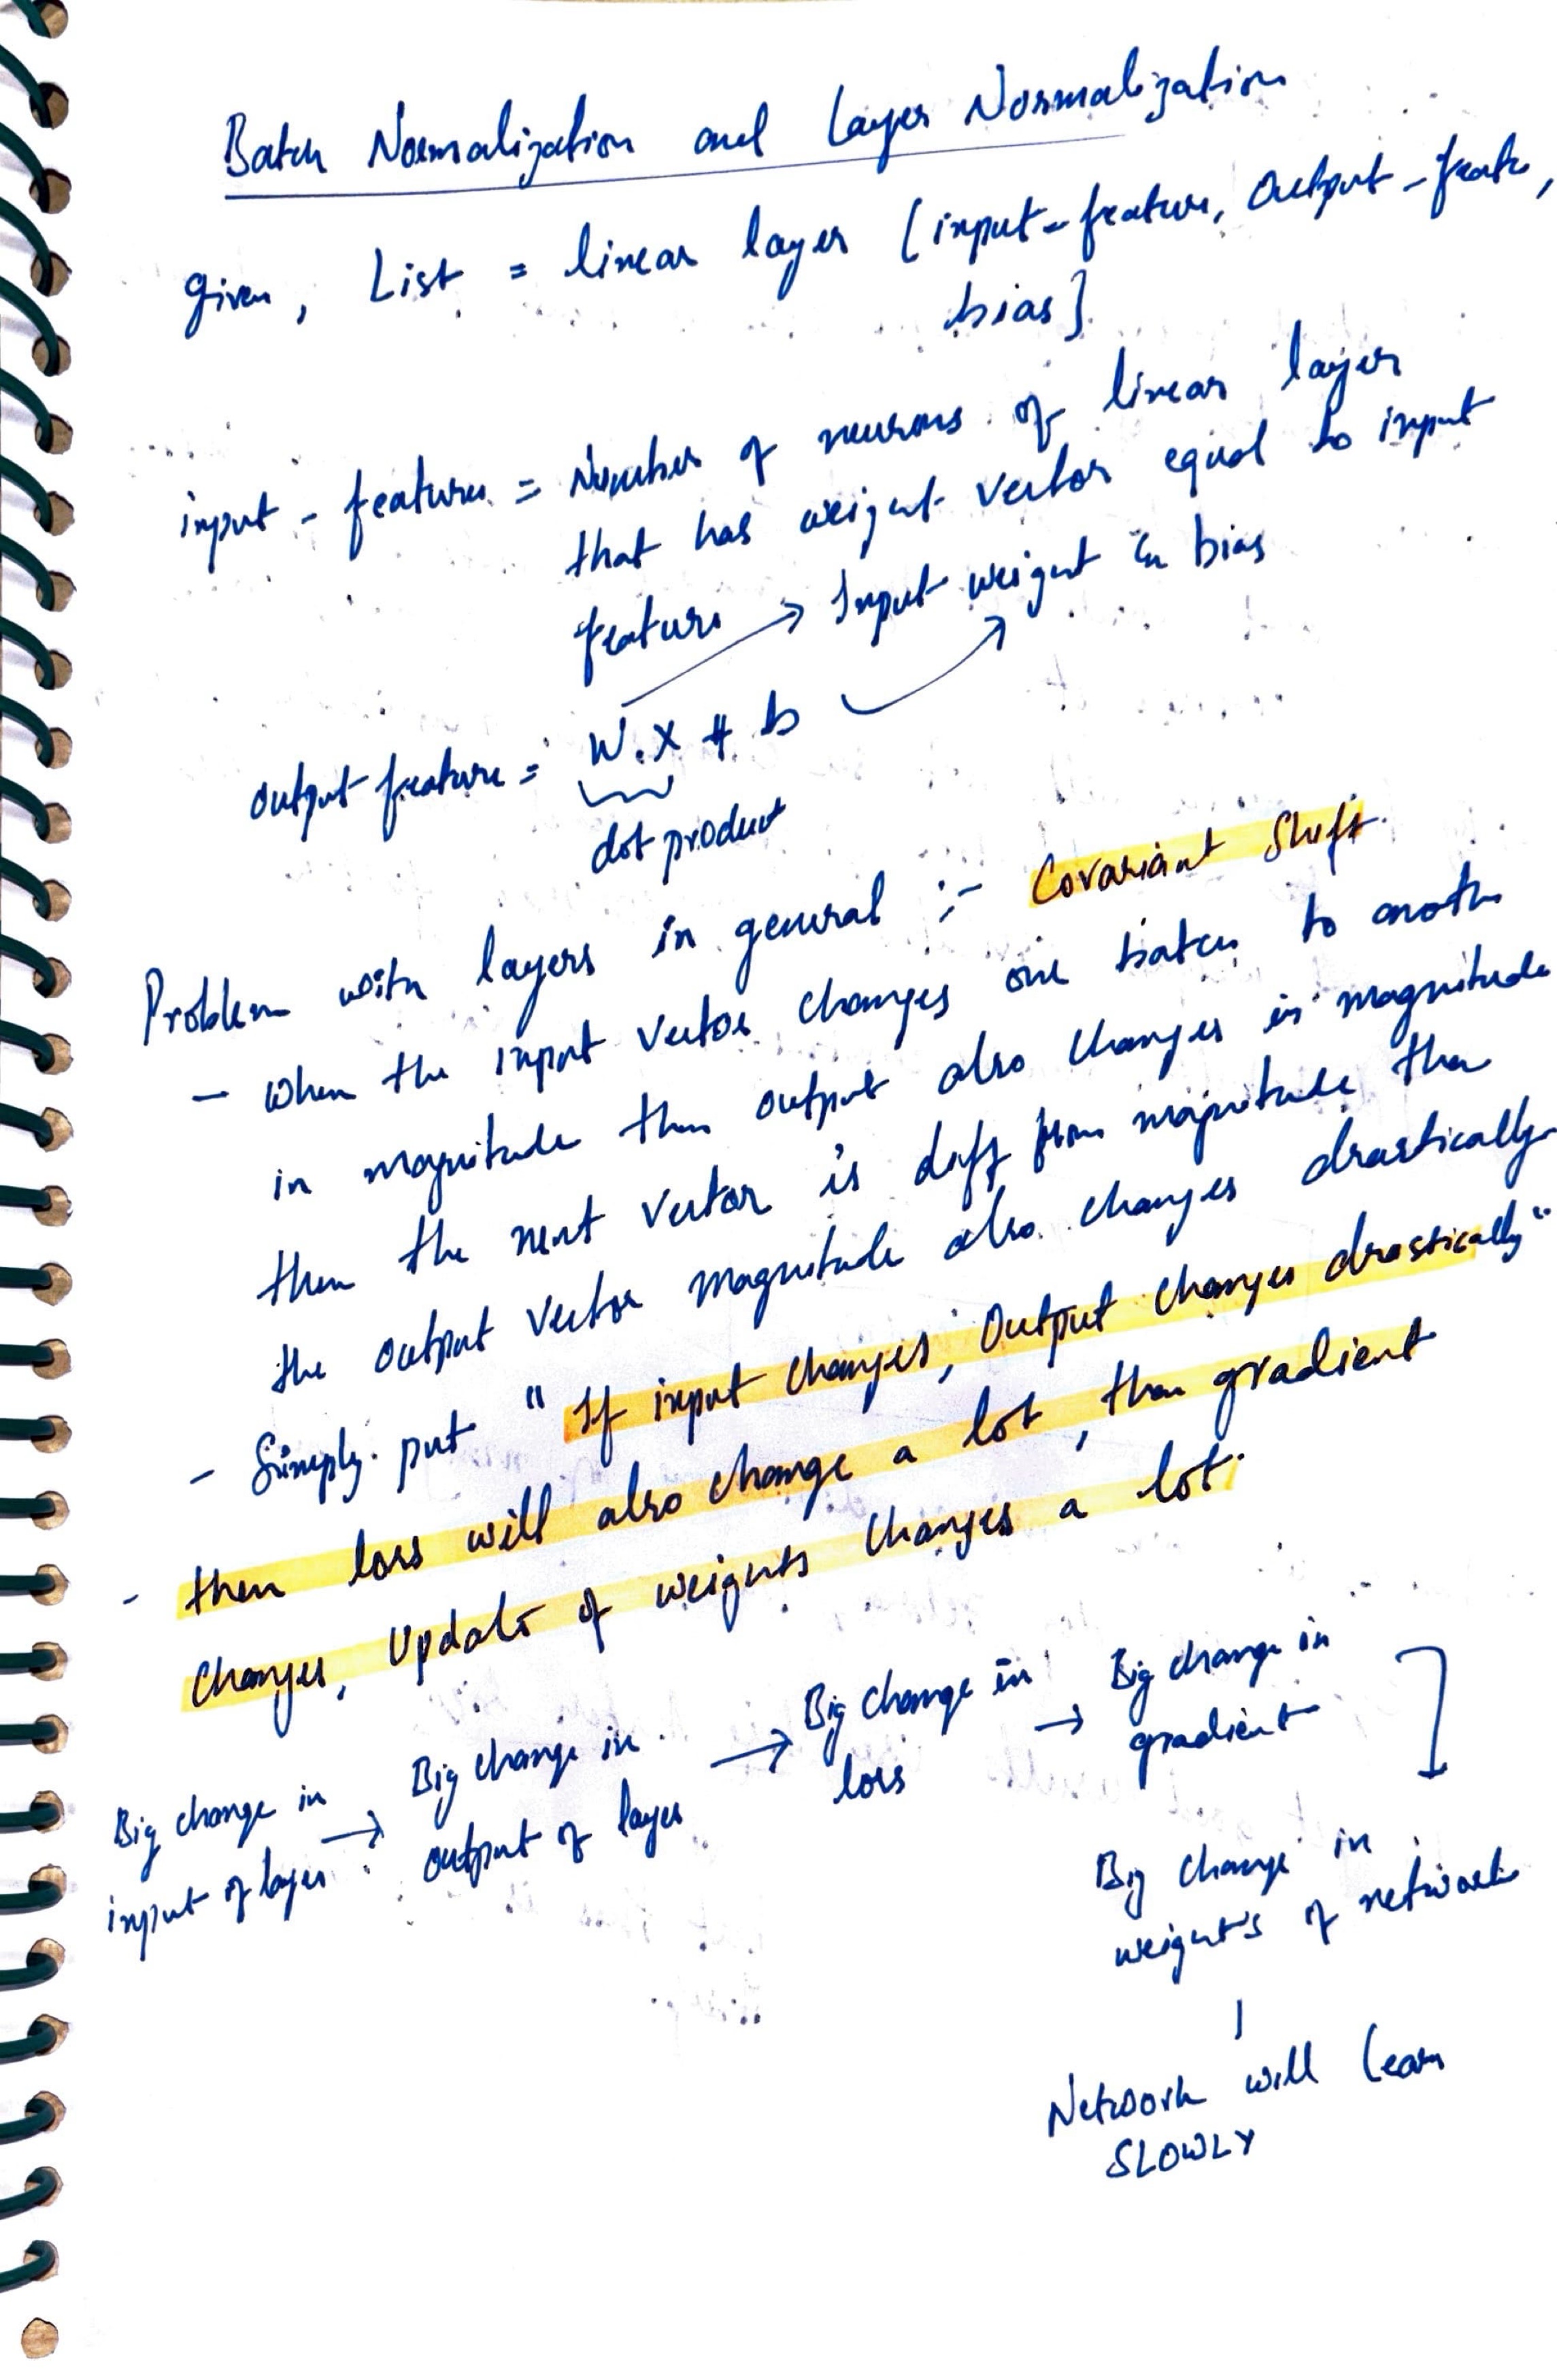 Batch Normalization and Layer Normalization
Given, List = linear layer [input-feature, output-feate,
bias]
input-features = Number of neurons of linear layer
that has weight vector equal to input
features → Input weight & bias
output feature = W.X + b
dot product
Problem with layers in general :- Covariant Shift.
- When the input vector changes one batch to anoth
in magnitude then output also changes in magnitude
then the next vector is diff from magnitude then
the output vector magnitude also changes drastically
- Simply put " If input changes, Output changes drastically"
- then loss will also change a lot, then gradient
changes, Update of weights changes a lot.
Big change in input of layer → Big change in output of layer → Big change in loss → Big change in gradient
Big change in
weight's of network
Network will learn
SLOWLY